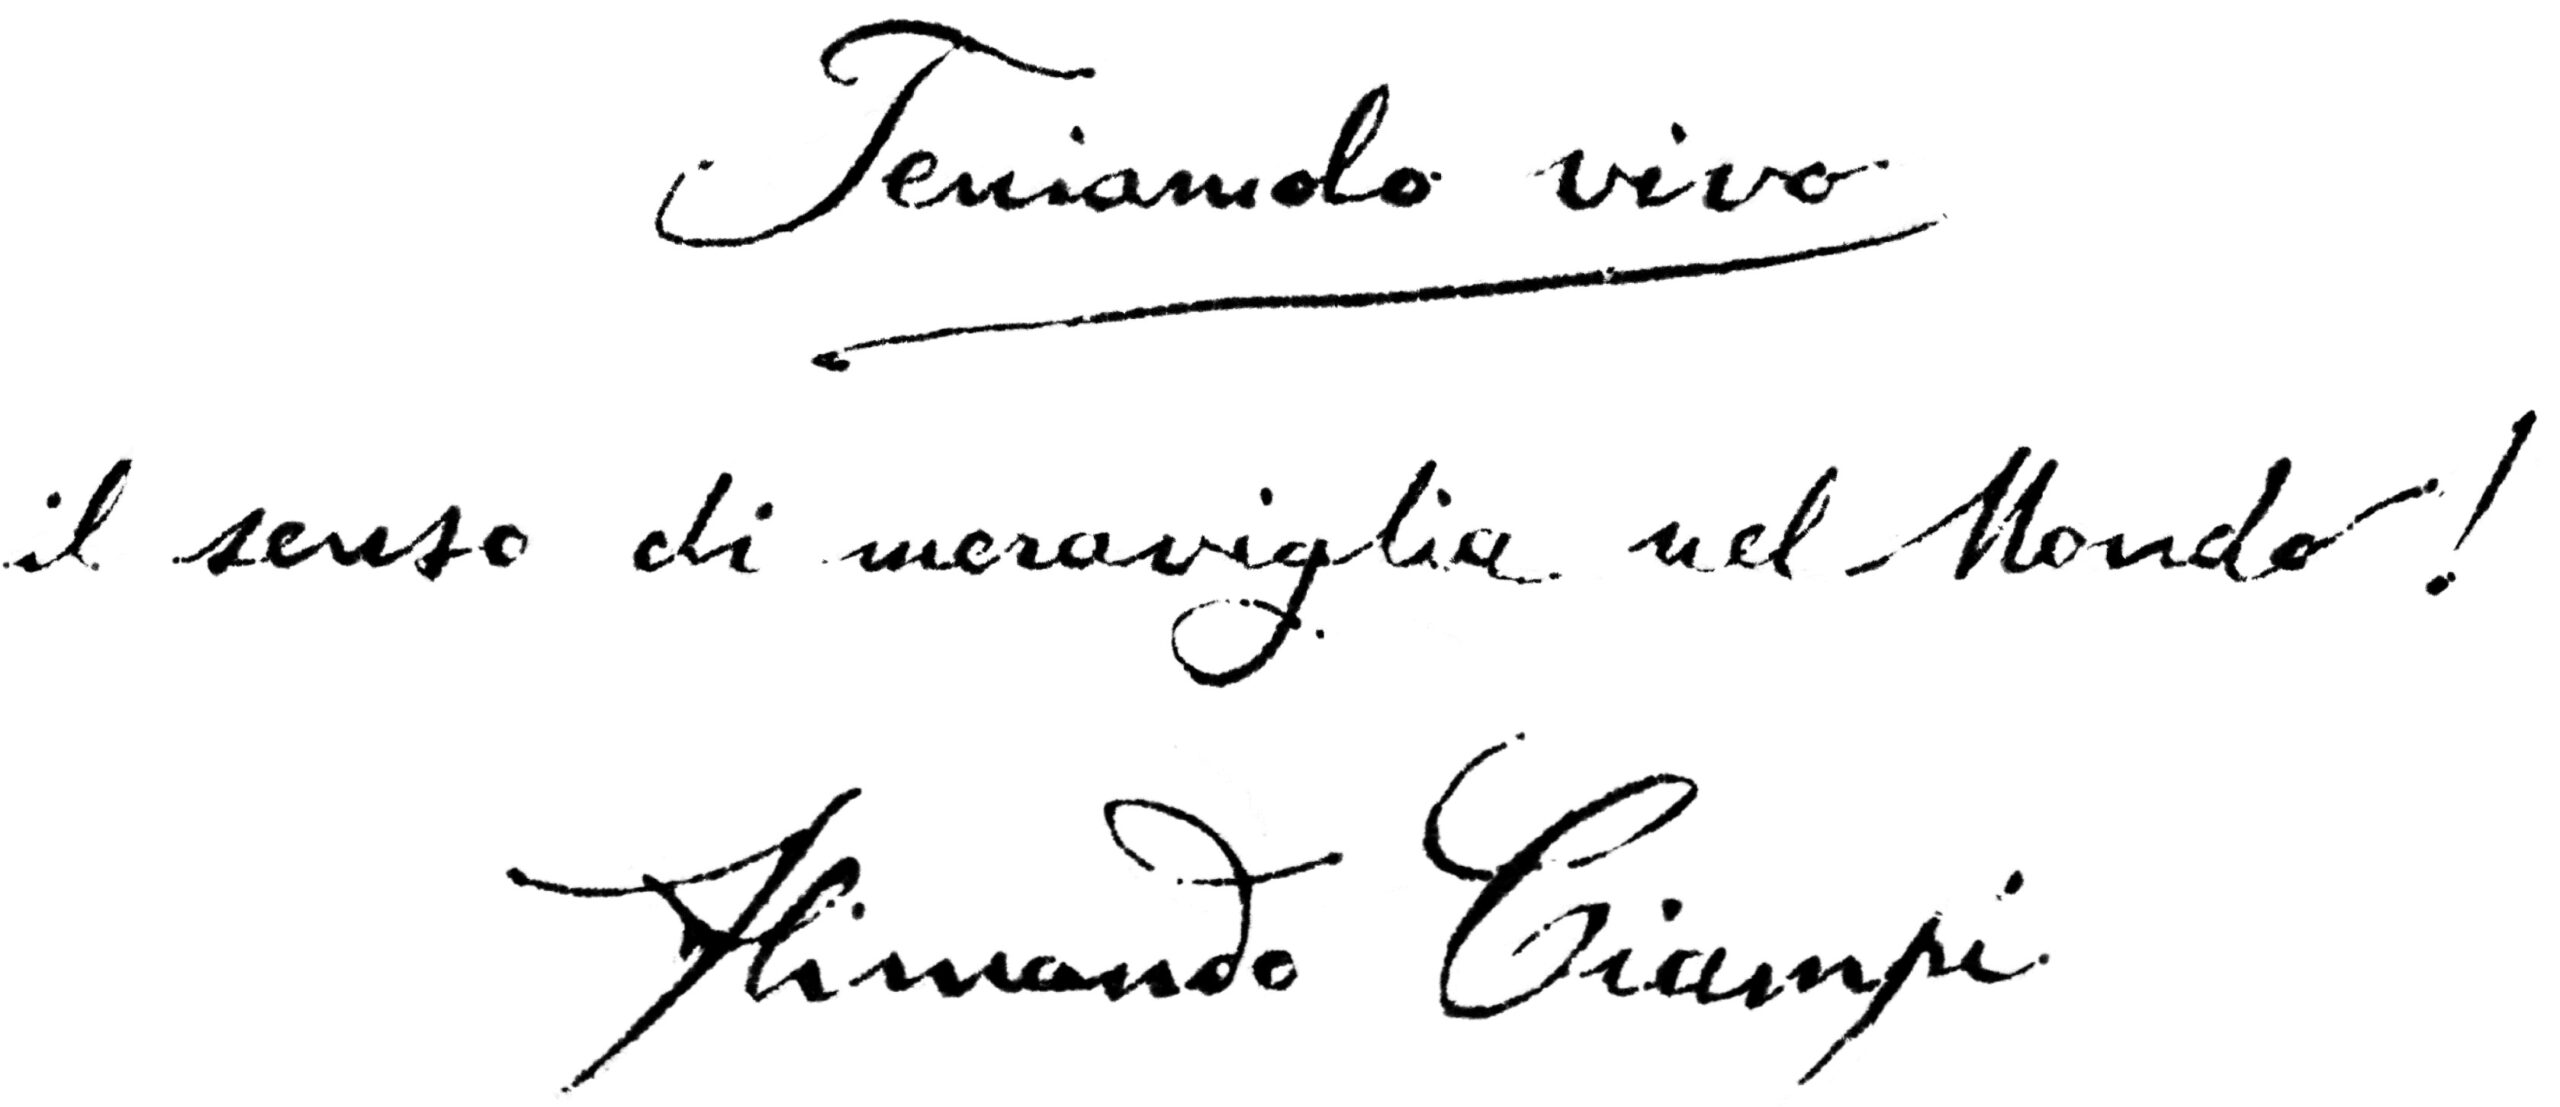 Teniamolo vivo
il senso di meraviglia nel Mondo!
Alimondo Ciampi